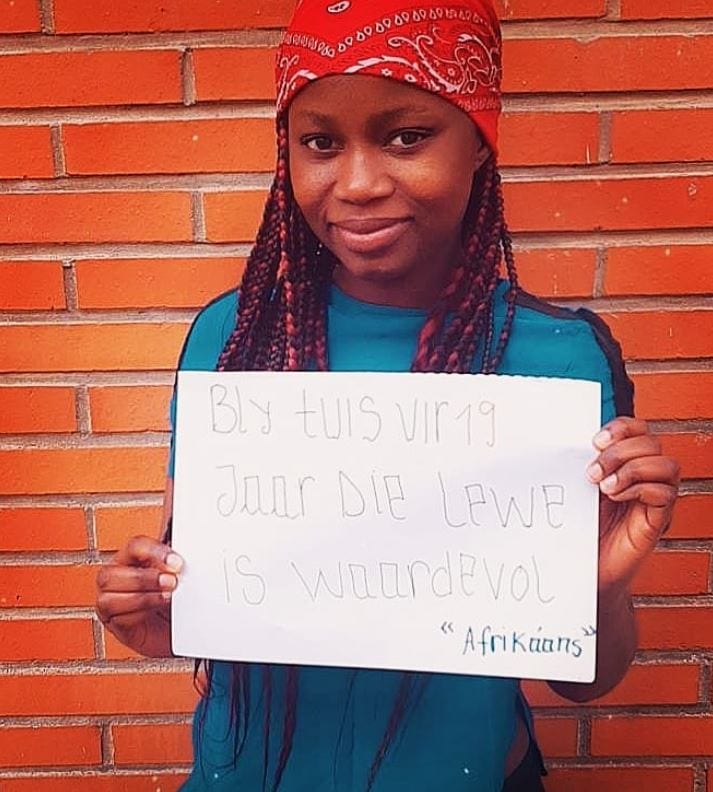 Bly tuis vir 19
Jaar Die Lewe
is waardevol
"Afrikáans"